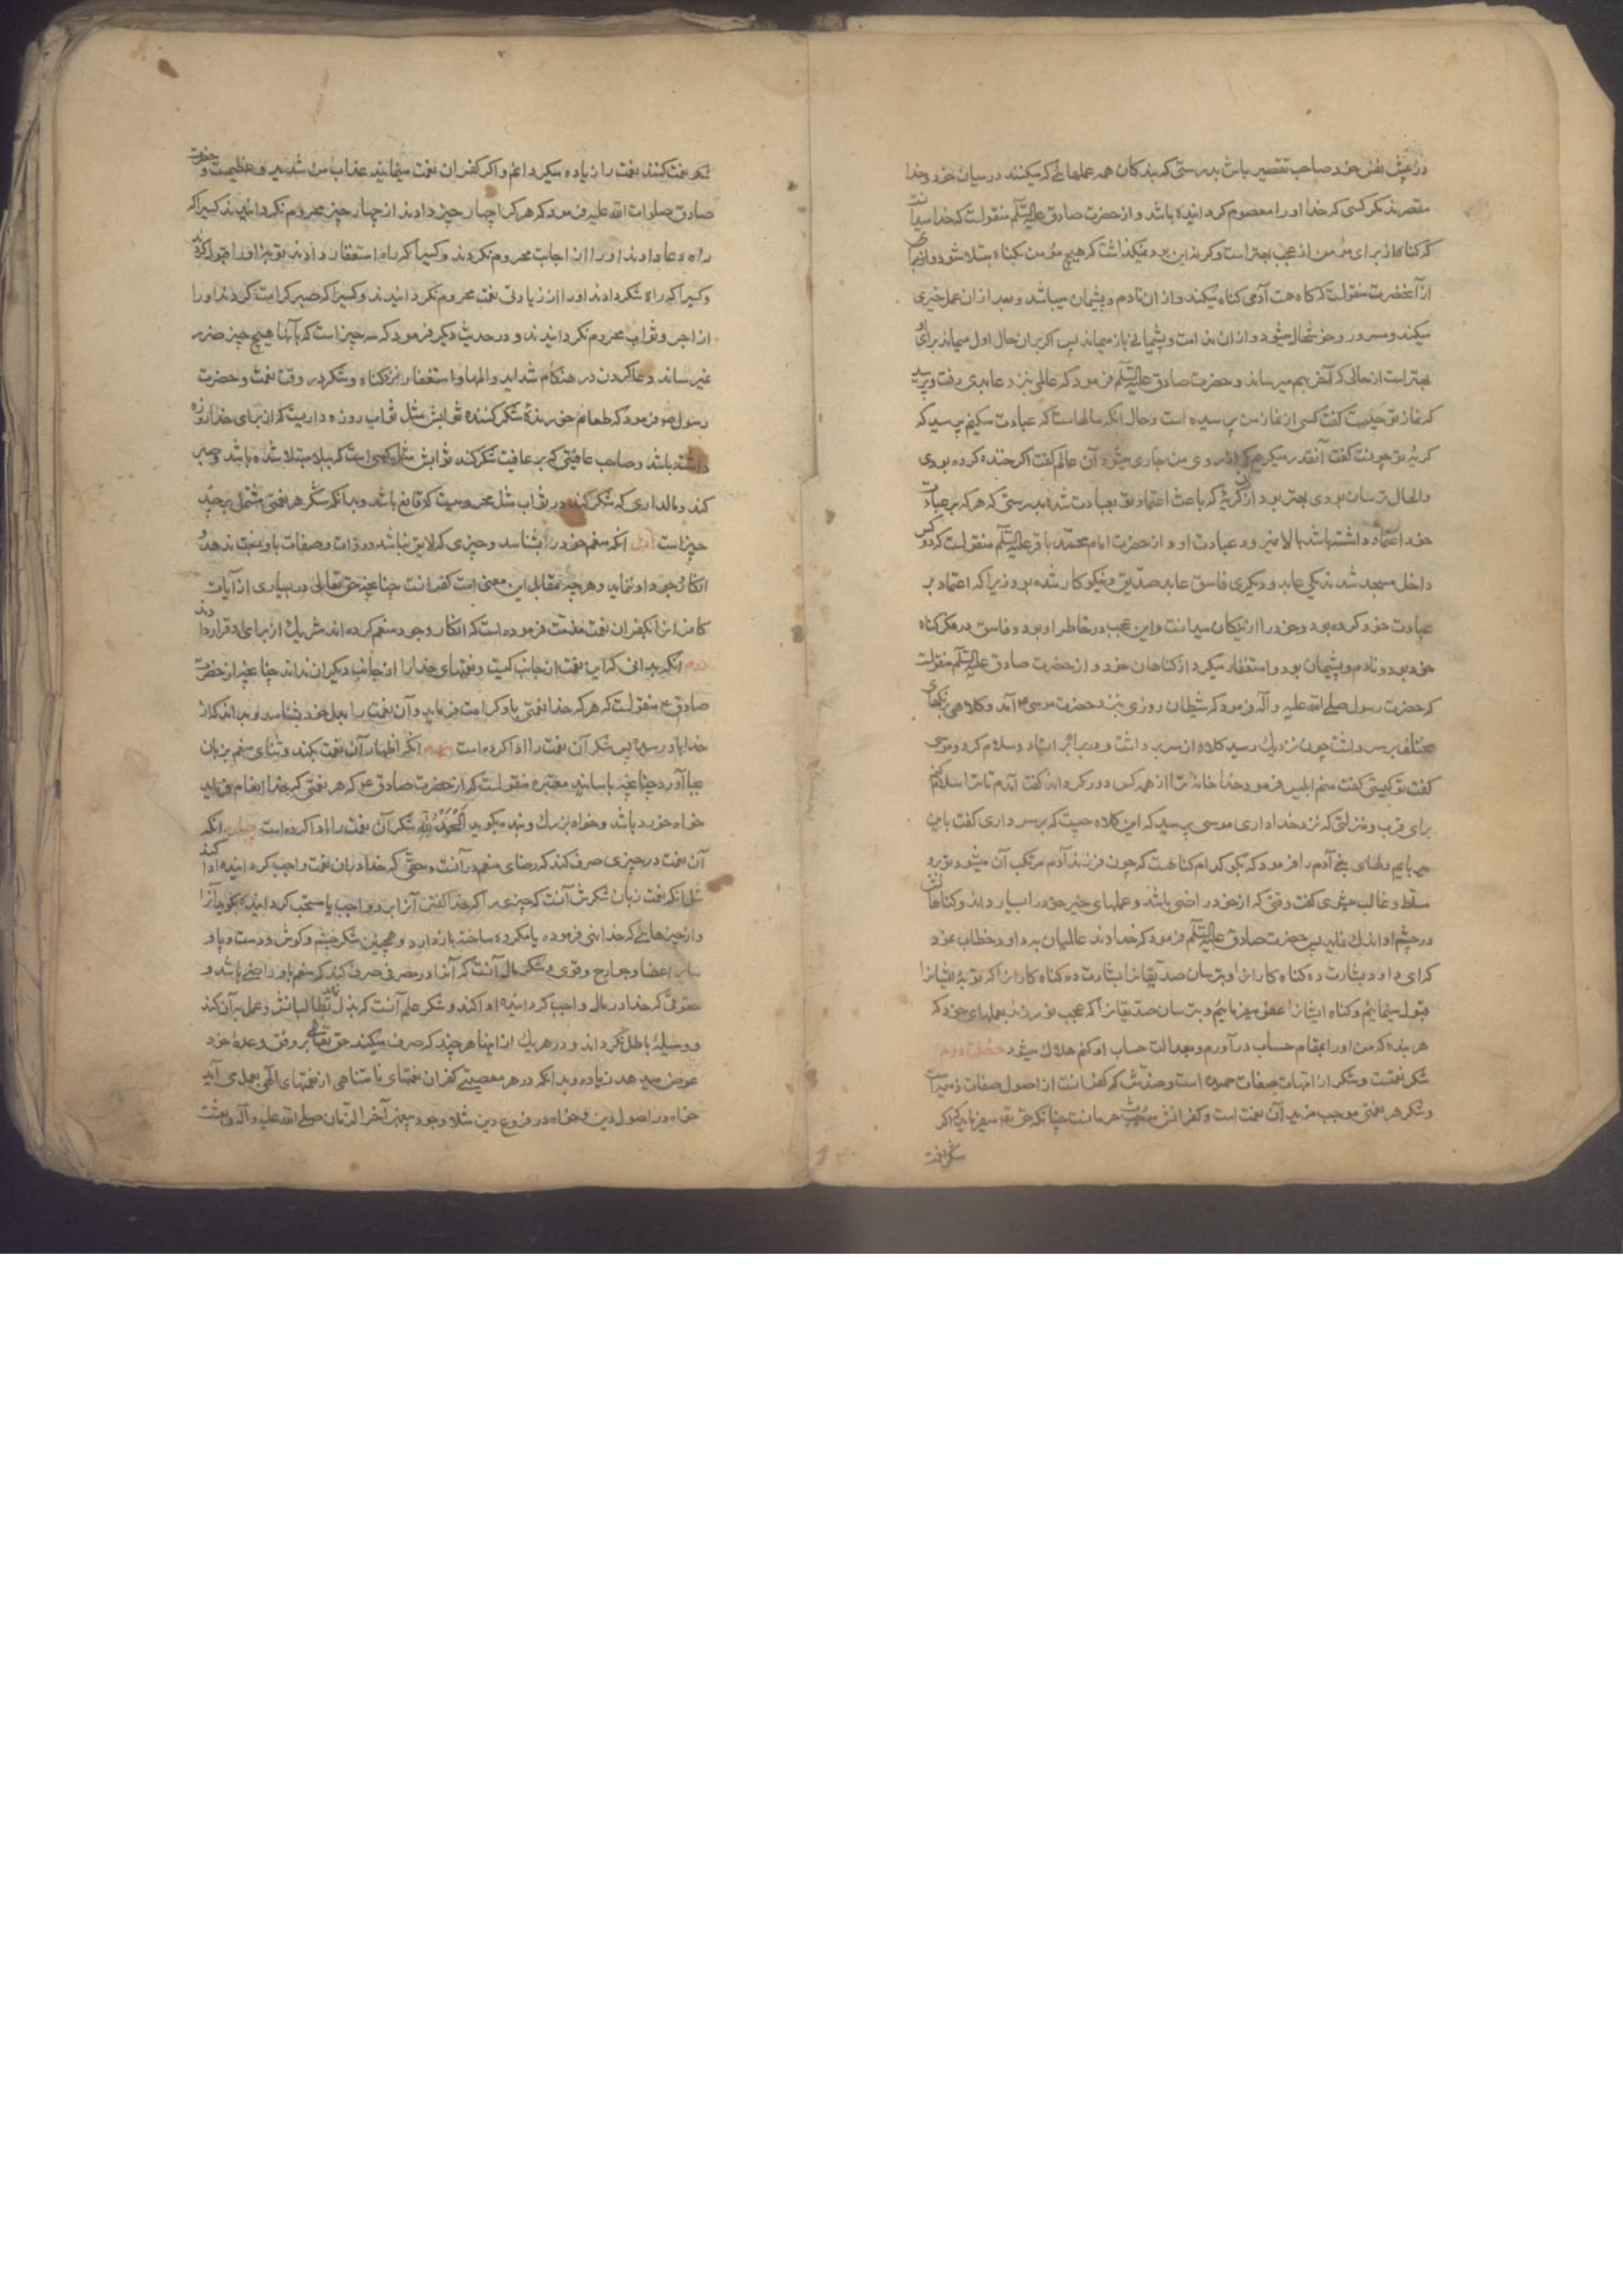 در پیش نفس خود صاحب تقصیر باش بدرستی که بندکان همه عملهائی که میکنند در میان خود و خدا
مقصرند مکر کسی که خدا او را معصوم کردانیده باشد و از حضرت صادق علیه السلم منقولست که خدا میدانست
که کناه از برای مؤمن از عجب بهتر است و کر نه این بود نمیکذاشت که هیچ مؤمن بکناه مبتلا شود و
از آنحضرت منقولست که کاه هست آدمی کناه میکند و از ان نادم و پشیمان میباشد و بعد از ان عمل خیری
میکند و مسرور و خوشحال میشود و از ان ندامت و پشیمانی باز میماند پس اکر بران حال اول میماند برای او
بهتر است از حالی که آخر بهم میرساند و حضرت صادق علیه السلم فرمود که عالمی بنزد عابدی رفت و پرسید
که نماز تو چکونست کفت کسی از نماز من پرسیده است و حال انکه سالهاست که عبادت میکنم پرسید که
کریه تو چونست کفت آنقدر میکریم که از روی من جاری میشود آن عالم کفت اکر خنده کرده بودی
و الحال ترسان بودی بهتر بود از ان کریه که باعث اعتماد تو بعبادت شده بدرستی که هر که بر عبادت
خود اعتماد داشته باشد بالا نمیرود عبادت او و از حضرت امام محمد باقر علیه السلم منقولست که دو کس
داخل مسجد شدند یکی عابد و دیکری فاسق عابد صدیق و نیکوکار شده بود زیرا که اعتماد بر
عبادت خود کرده بود و خود را از نیکان میدانست و این عجب در خاطر او بود و فاسق در فکر کناه
خود بود و نادم و پشیمان بود و استغفار میکرد از کناهان خود و از حضرت صادق علیه السلم منقولست
که حضرت رسول صلی الله علیه و آله فرمود که شیطان روزی بنزد حضرت موسی ع آمد و کلاهی برنکهای
مختلف بر سر داشت چون نزدیک رسید کلاه از سر برداشت و در برابر ایستاد و سلام کرد موسی
کفت تو کیستی کفت منم ابلیس فرمود خدا خانه ترا از همه کس دور کرداند کفت آمدم تا ترا سلام کنم
برای قرب و منزلتی که نزد خدا داری موسی پرسید که این کلاه چیست که بر سر داری کفت باین
میربایم دلهای بنی آدم را فرمود که بکو کدام کناهست که چون فرزند آدم مرتکب آن میشود تو برو
مسلط و غالب میشوی کفت وقتی که از خود راضی باشد و عملهای خیر خود را بسیار داند و کناهانش
در چشم او اندک نماید پس حضرت صادق علیه السلم فرمود که خداوند عالمیان بداود خطاب نمود
که ای داود بشارت ده کناه کارانرا و بترسان صدیقانرا بشارت ده کناه کارانرا که توبهٔ ایشانرا
قبول مینمایم و کناه ایشانرا عفو میفرمایم و بترسان صدیقانرا که عجب نورزند بعملهای خود که
هر بنده که من او را بمقام حساب درآورم و بعدالت حساب او کنم هلاک میشود خصلت دوم
شکر نعمتست و شکر از امهات صفات حمیده است و ضدش که کفرانست از اصول صفات ذمیمه است
و شکر هر نعمتی موجب مزید آن نعمت است و کفرانش موجب حرمانست چنانکه حق تع میفرماید که اکر
شکر نعمت
شکر نعمت کنید نعمت را زیاده میکردانم و اکر کفران نعمت مینمائید عذاب من شدید و عظیمست و حضرت
صادق صلوات الله علیه فرمود که هر که را چهار چیز دادند از چهار چیز محروم نکردانیدند کسیرا که
راه دعا دادند او را از اجابت محروم نکردند و کسیرا که راه استغفار دادند توبه او را قبول کردند
و کسیرا که راه شکر دادند او را از زیادتی نعمت محروم نکردانیدند و کسیرا که صبر کرامت کردند او را
از اجر و ثواب محروم نکردانیدند و در حدیث دیکر فرمود که سه چیز است که بآنها هیچ چیز ضرر
نمیرساند دعا کردن در هنکام شداید و المها و استغفار نزد کناه و شکر در وقت نعمت و حضرت
رسول ص فرمود که طعام خورندهٔ شکر کننده ثوابش مثل ثواب روزه داریست که از برای خدا روزه
داشته باشد و صاحب عافیتی که بر عافیت شکر کند ثوابش مثل کسی است که ببلا مبتلا شده باشد و صبر
کند و مالداری که شکر کند در ثواب مثل محرومیست که قانع باشد و بدانکه شکر هر نعمتی مشتمل بر چند
چیز است اول انکه منعم خود را بشناسد و چیزی که لایق نباشد در ذات و صفات باو نسبت ندهد و
انکار وجود او ننماید و هر چه مقابل این معنی است کفرانست چنانچه حق تعالی در بسیاری از آیات
کافران را بکفران نعمت مذمت فرموده است که انکار وجود منعم کرده اند شریک از برای او قرار دادند
دوم انکه بدانی که این نعمت از جانب کیست و نعمتهای خدا را از جانب دیکران نداند چنانچه از حضرت
صادق ع منقولست که هر که خدا نعمتی باو کرامت فرماید و آن نعمت را بدل خود بشناسد و بداند که از
خدا باو رسیده پس شکر آن نعمت را ادا کرده است سیم انکه اظهار آن نعمت بکند و ثنای منعم بزبان
بجا آورد چنانچه باسانید معتبره منقولست که از حضرت صادق ع که هر نعمتی که خدا انعام فرماید
خواه خورد باشد و خواه بزرک و بنده بکوید اَلْحَمْدُ لِلّٰهِ شکر آن نعمت را ادا کرده است چهارم انکه
آن نعمت در چیزی صرف کند که رضای منعم در آنست و حقی که خدا در ان نعمت واجب کردانیده ادا کند
مثل انکه نعمت زبان شکرش آنست که چیزی را که خدا کفتن آنرا برو واجب یا مستحب کردانیده بکوید آنرا
و از چیزهائی که خدا نهی فرموده یا مکروه ساخته باز دارد و همچنین شکر چشم و کوش و دست و پا و
سایر اعضا و جوارح و قوی و شکر مال آنست که آنرا در مصرفی صرف کند که منعم باو راضی باشد و
حقوقی که خدا در مال واجب کردانیده ادا کند و شکر علم آنست که بذل نماید بطالبانش و عمل بآن کند
و وسیلهٔ باطل نکرداند و در هر یک از اینها هر چند که صرف میکند حق تعالی بر وفق وعدهٔ خود
عوض میدهد زیاده و بدانکه در هر معصیتی کفران نعمتهای نامتناهی از نعمتهای الهی بعمل می آید
خواه در اصول دین و خواه در فروع دین مثلا وجود پیغمبر آخر الزمان صلی الله علیه و آله و بعثت